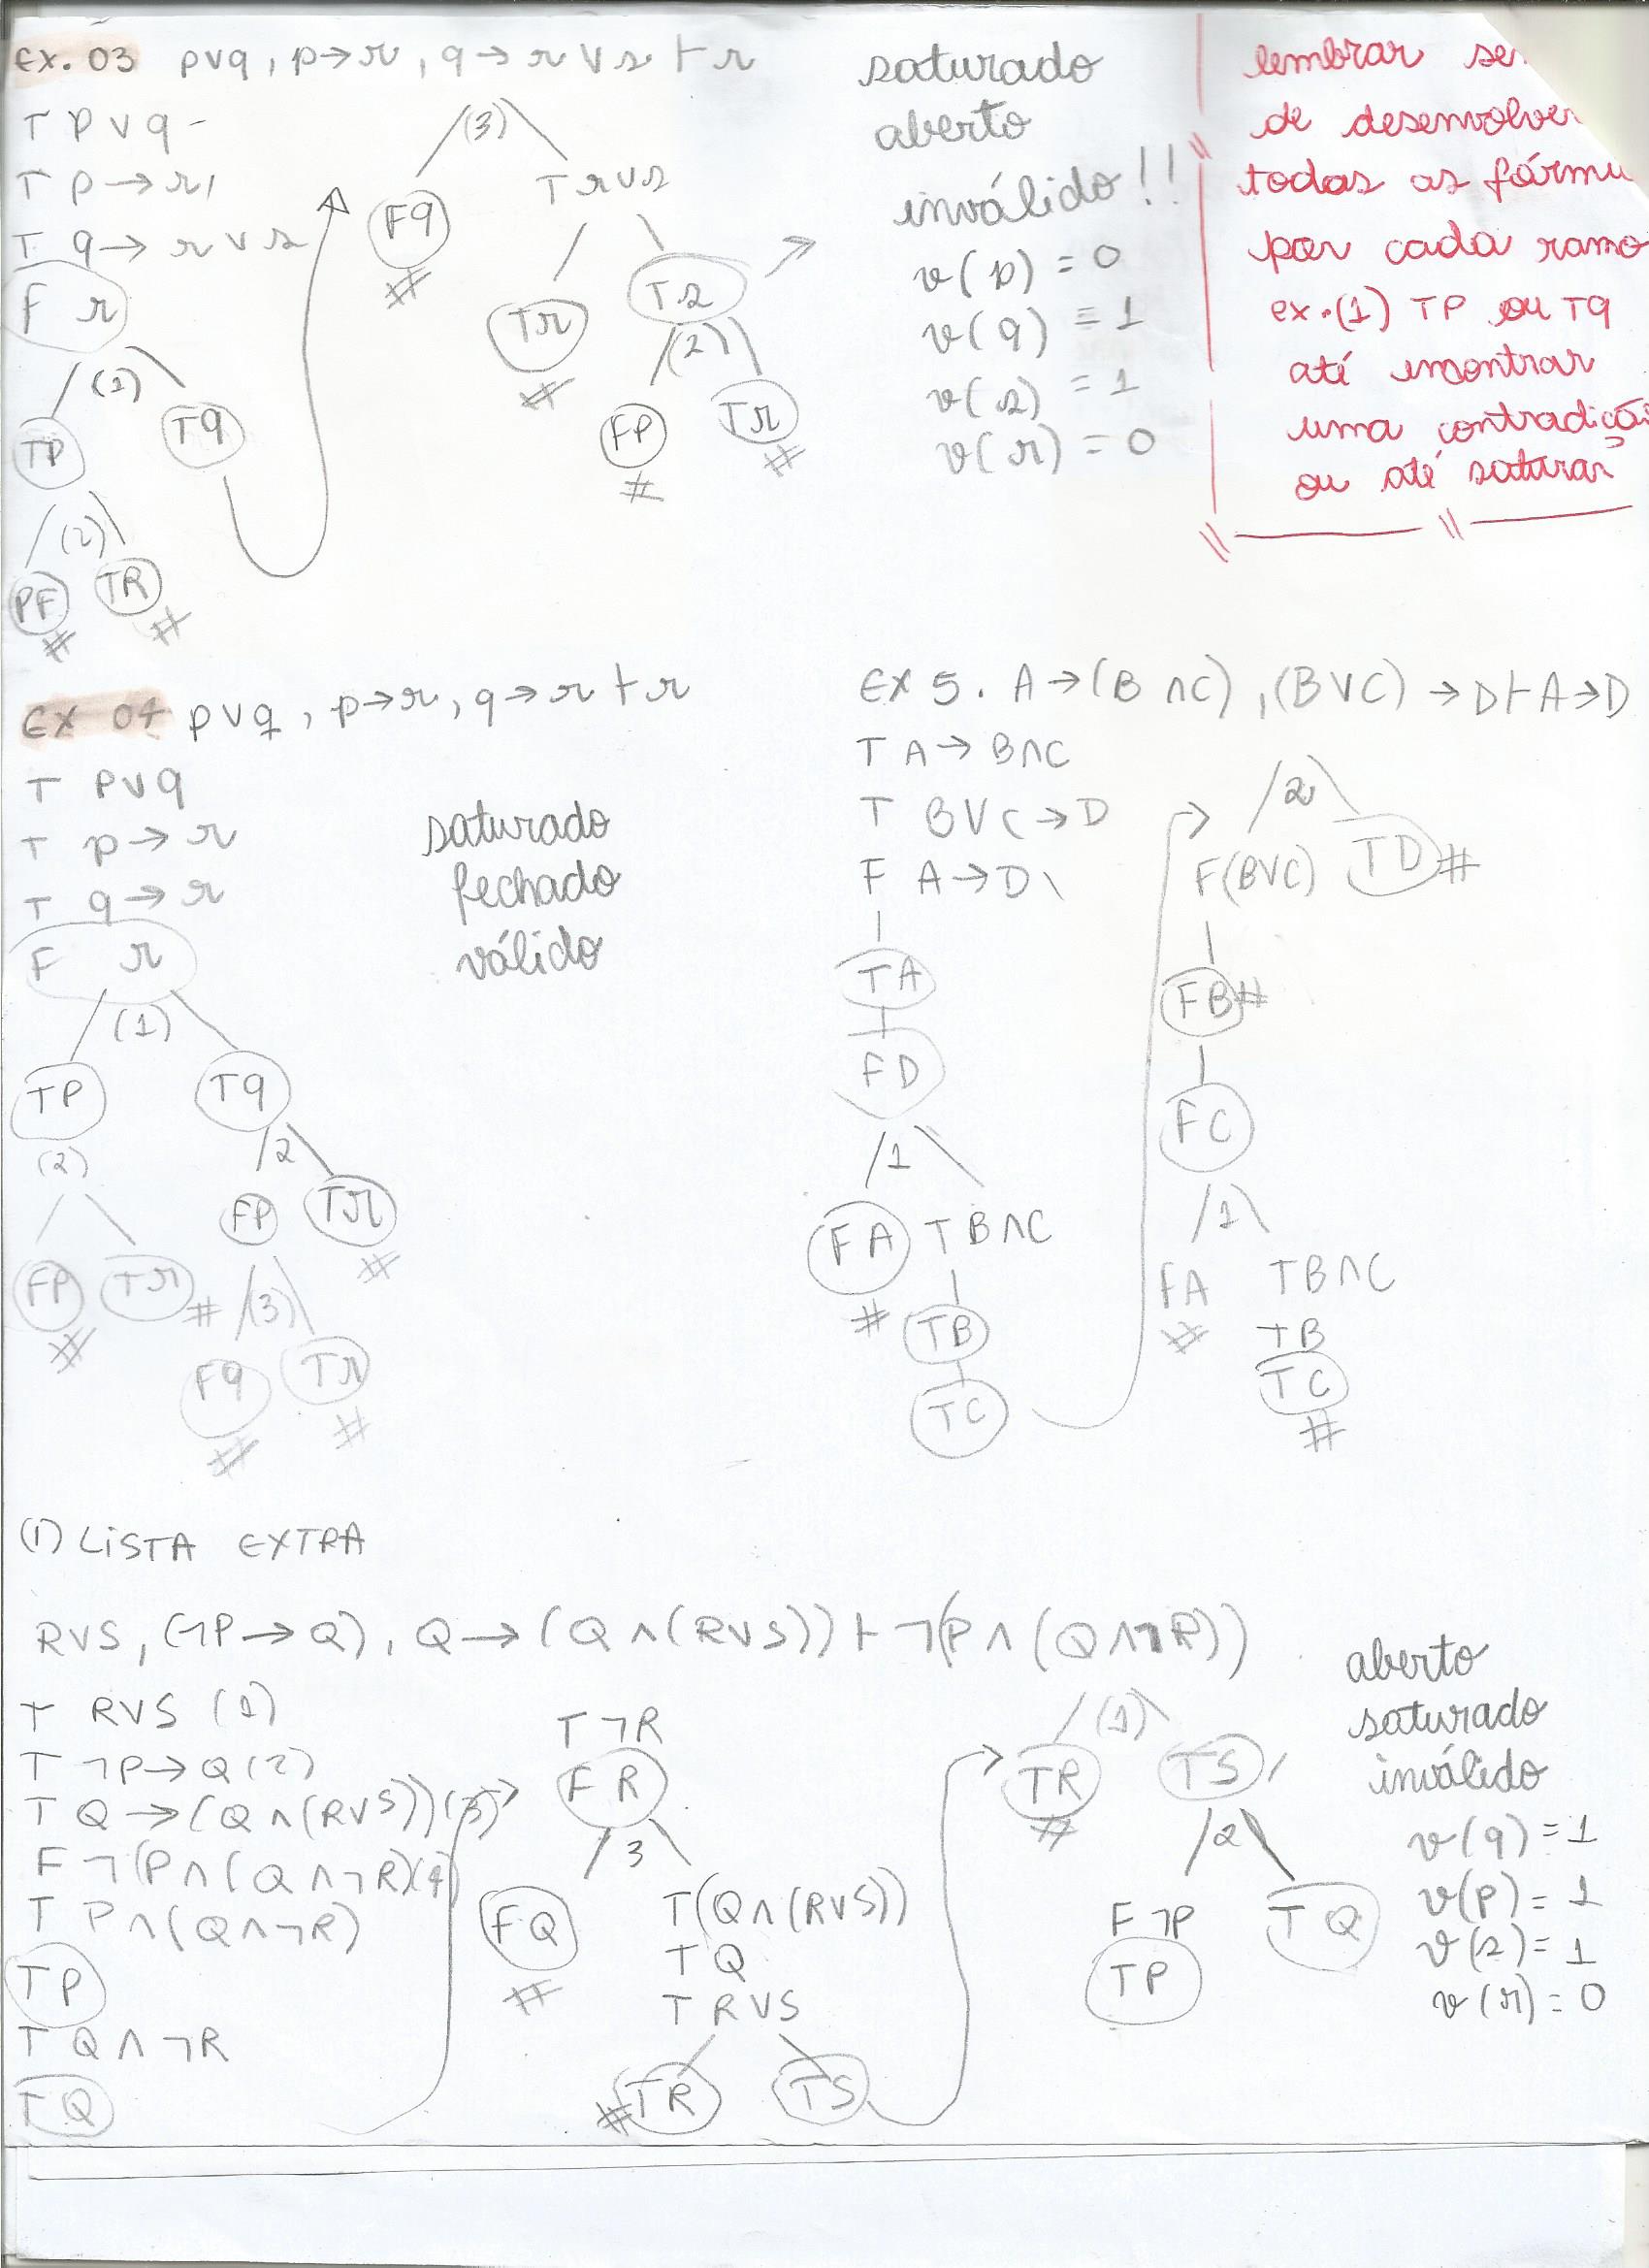 Ex. 03 pvq, p→r, q→r v s ⊢ r
T P v q
T P → r
T q → r v s
F r
(1)
TP Tq
(2)
PF TR
# #
(3)
Fq T r v s
#
Tr Ts
#
(2)
FP Tr
# #
saturado
aberto
inválido!!
v(p) = 0
v(q) = 1
v(s) = 1
v(r) = 0
lembrar
de desenvolver
todas as
por cada ramo
ex.(1) TP ou Tq
até encontrar
uma contradição
ou até saturar
Ex 04 pvq, p→r, q→r ⊢ r
T P v q
T p → r
T q → r
F r
(1)
TP Tq
(2) 2
FP Tr FP Tr
# # #
(3)
Fq Tr
# #
saturado
fechado
válido
Ex 5. A→(B∧C), (BVC)→D ⊢ A→D
T A→B∧C
T BVC→D
F A→D
TA
FD
1
FA T B∧C
#
TB
TC
2
F(BVC) TD #
FB #
FC
1
FA TB∧C
# TB
TC
#
(1) LISTA EXTRA
RVS, (¬P→Q), Q→(Q∧(RVS)) ⊢ ¬(P∧(Q∧¬R))
T RVS (1)
T ¬P→Q (2)
T Q→(Q∧(RVS)) (3)
F ¬(P∧(Q∧¬R) (4)
T P∧(Q∧¬R)
TP
T Q∧¬R
TQ
T¬R
FR
3
FQ T(Q∧(RVS))
# TQ
T RVS
#TR TS
(1)
TR TS
#
2
F¬P TQ
TP
aberto
saturado
inválido
v(q) = 1
v(p) = 1
v(s) = 1
v(r) = 0